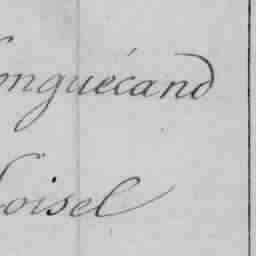 onguécand
oisel